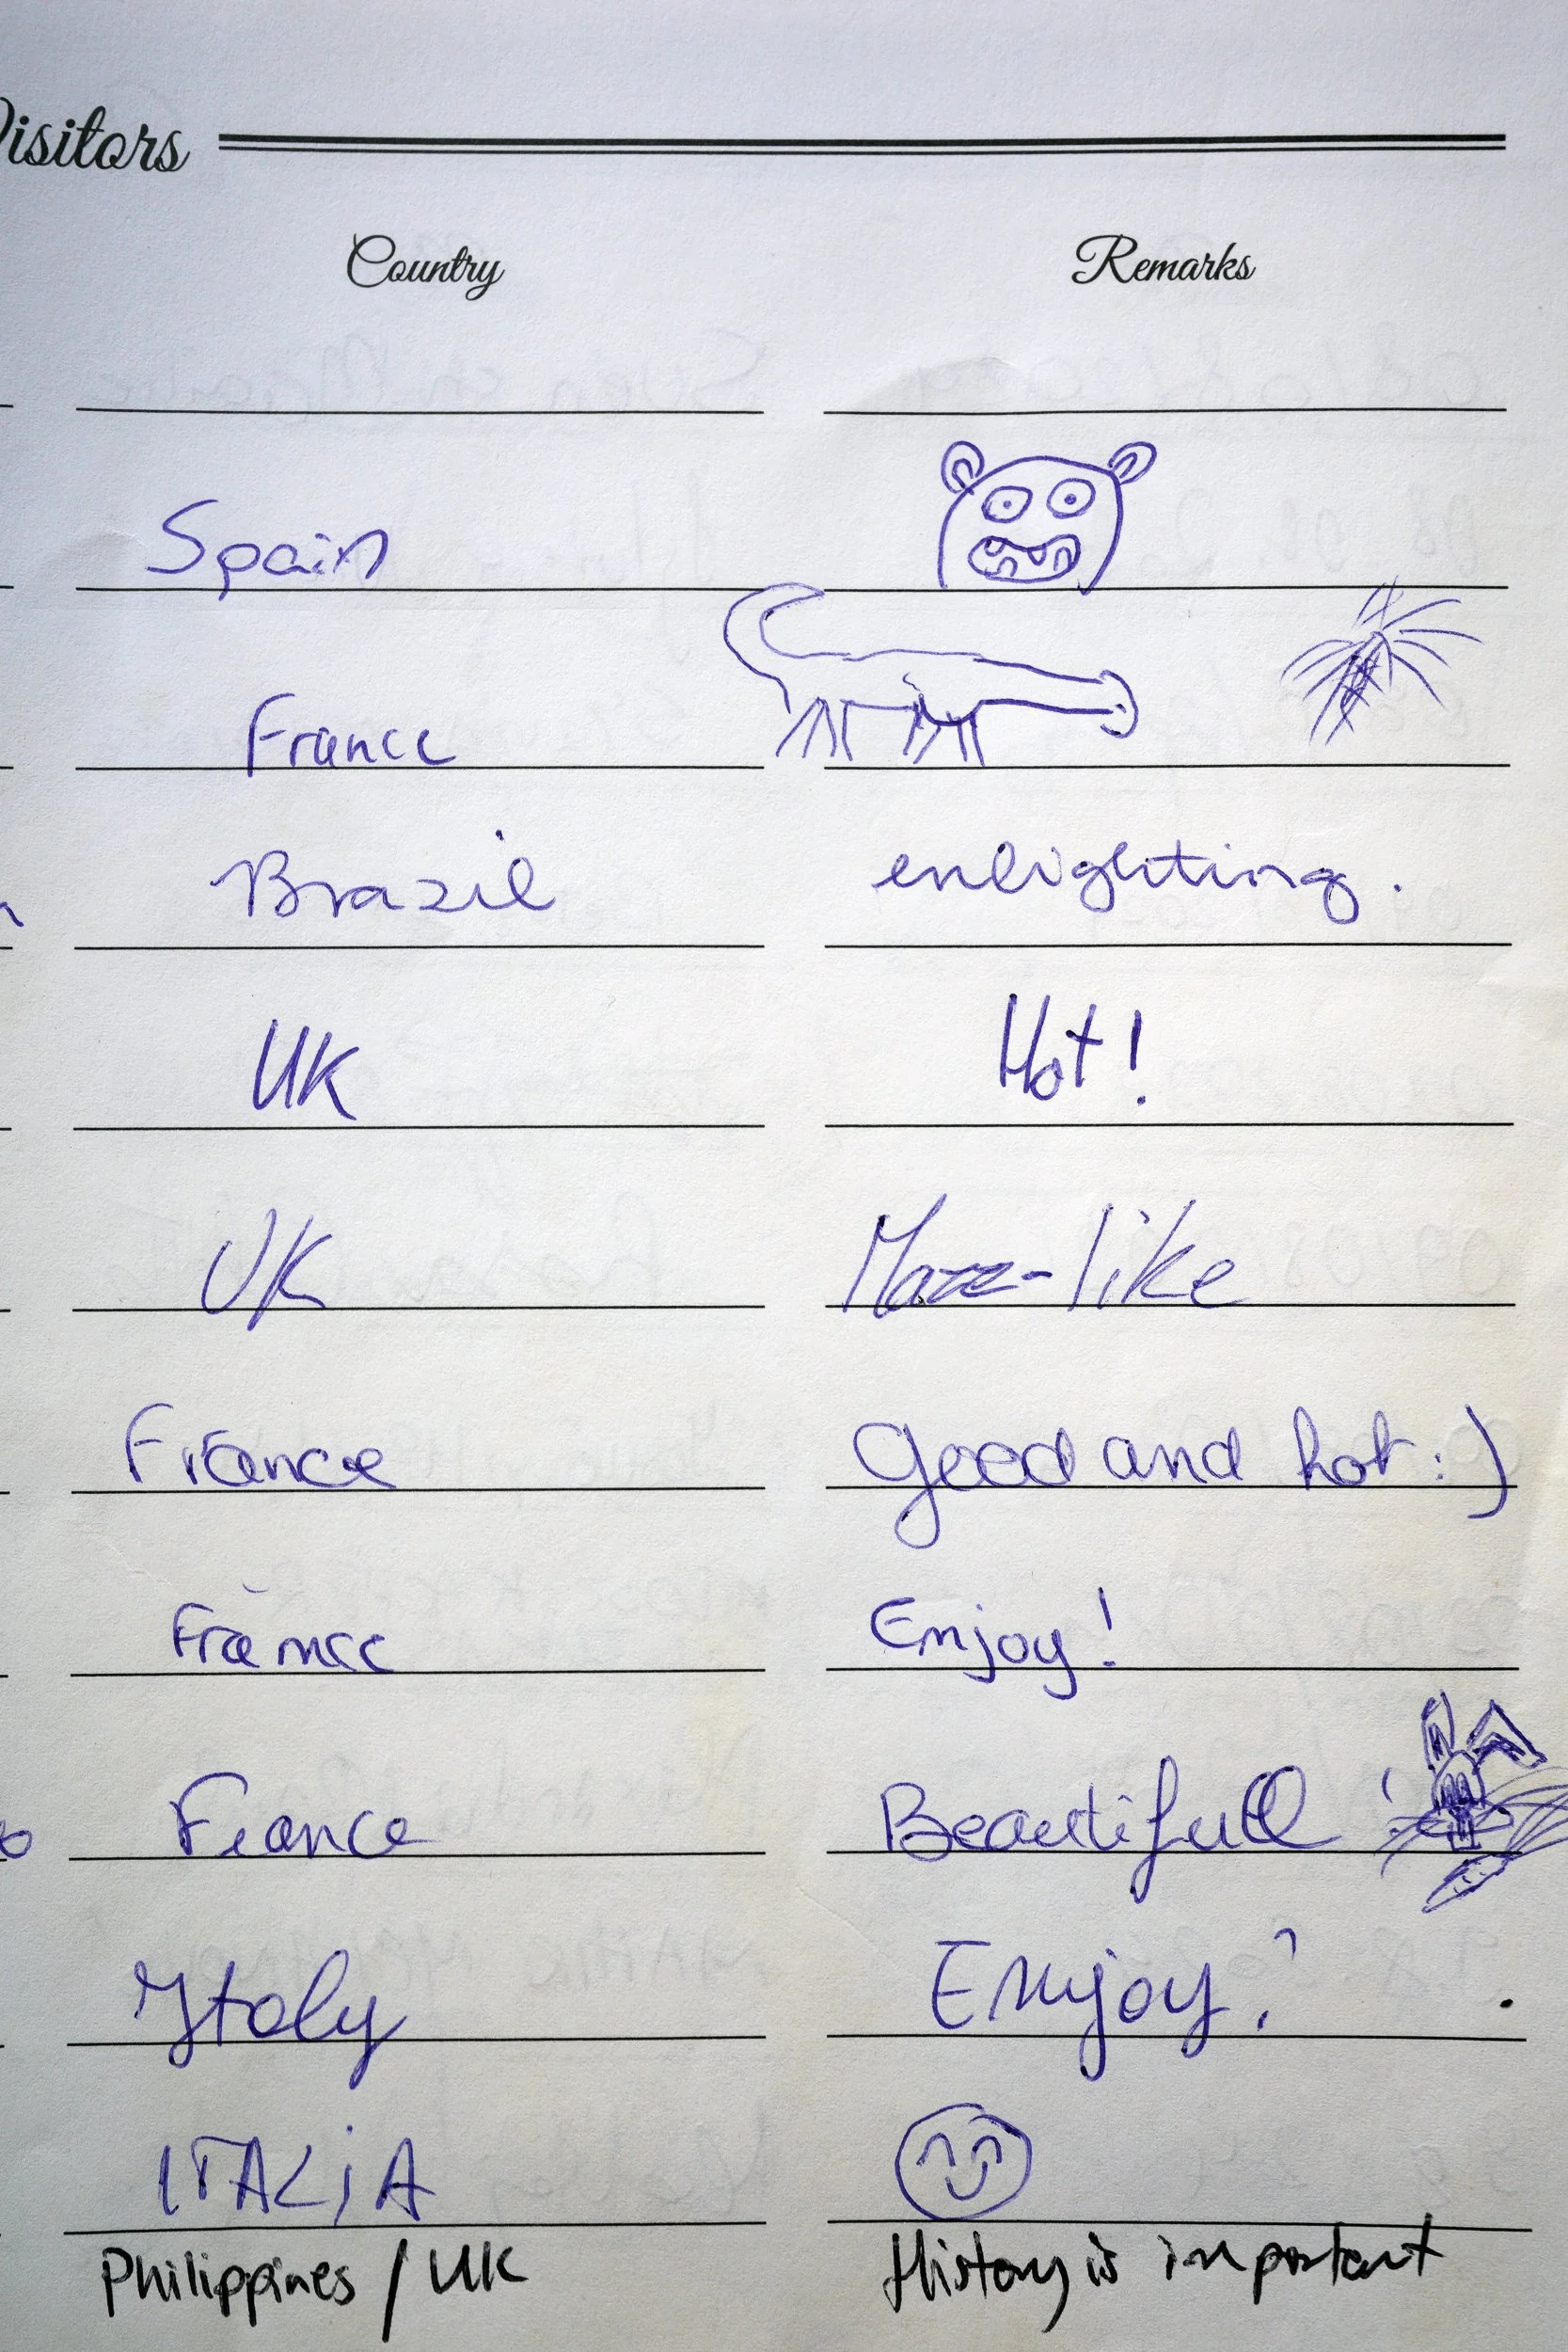 Visitors
Country Remarks
Spain
France
Brazil enlighting.
UK Hot!
UK Maze-like
France Good and hot :)
France Enjoy!
France Beautifull !
Italy Enjoy!
ITALiA
Philippines / UK History is important